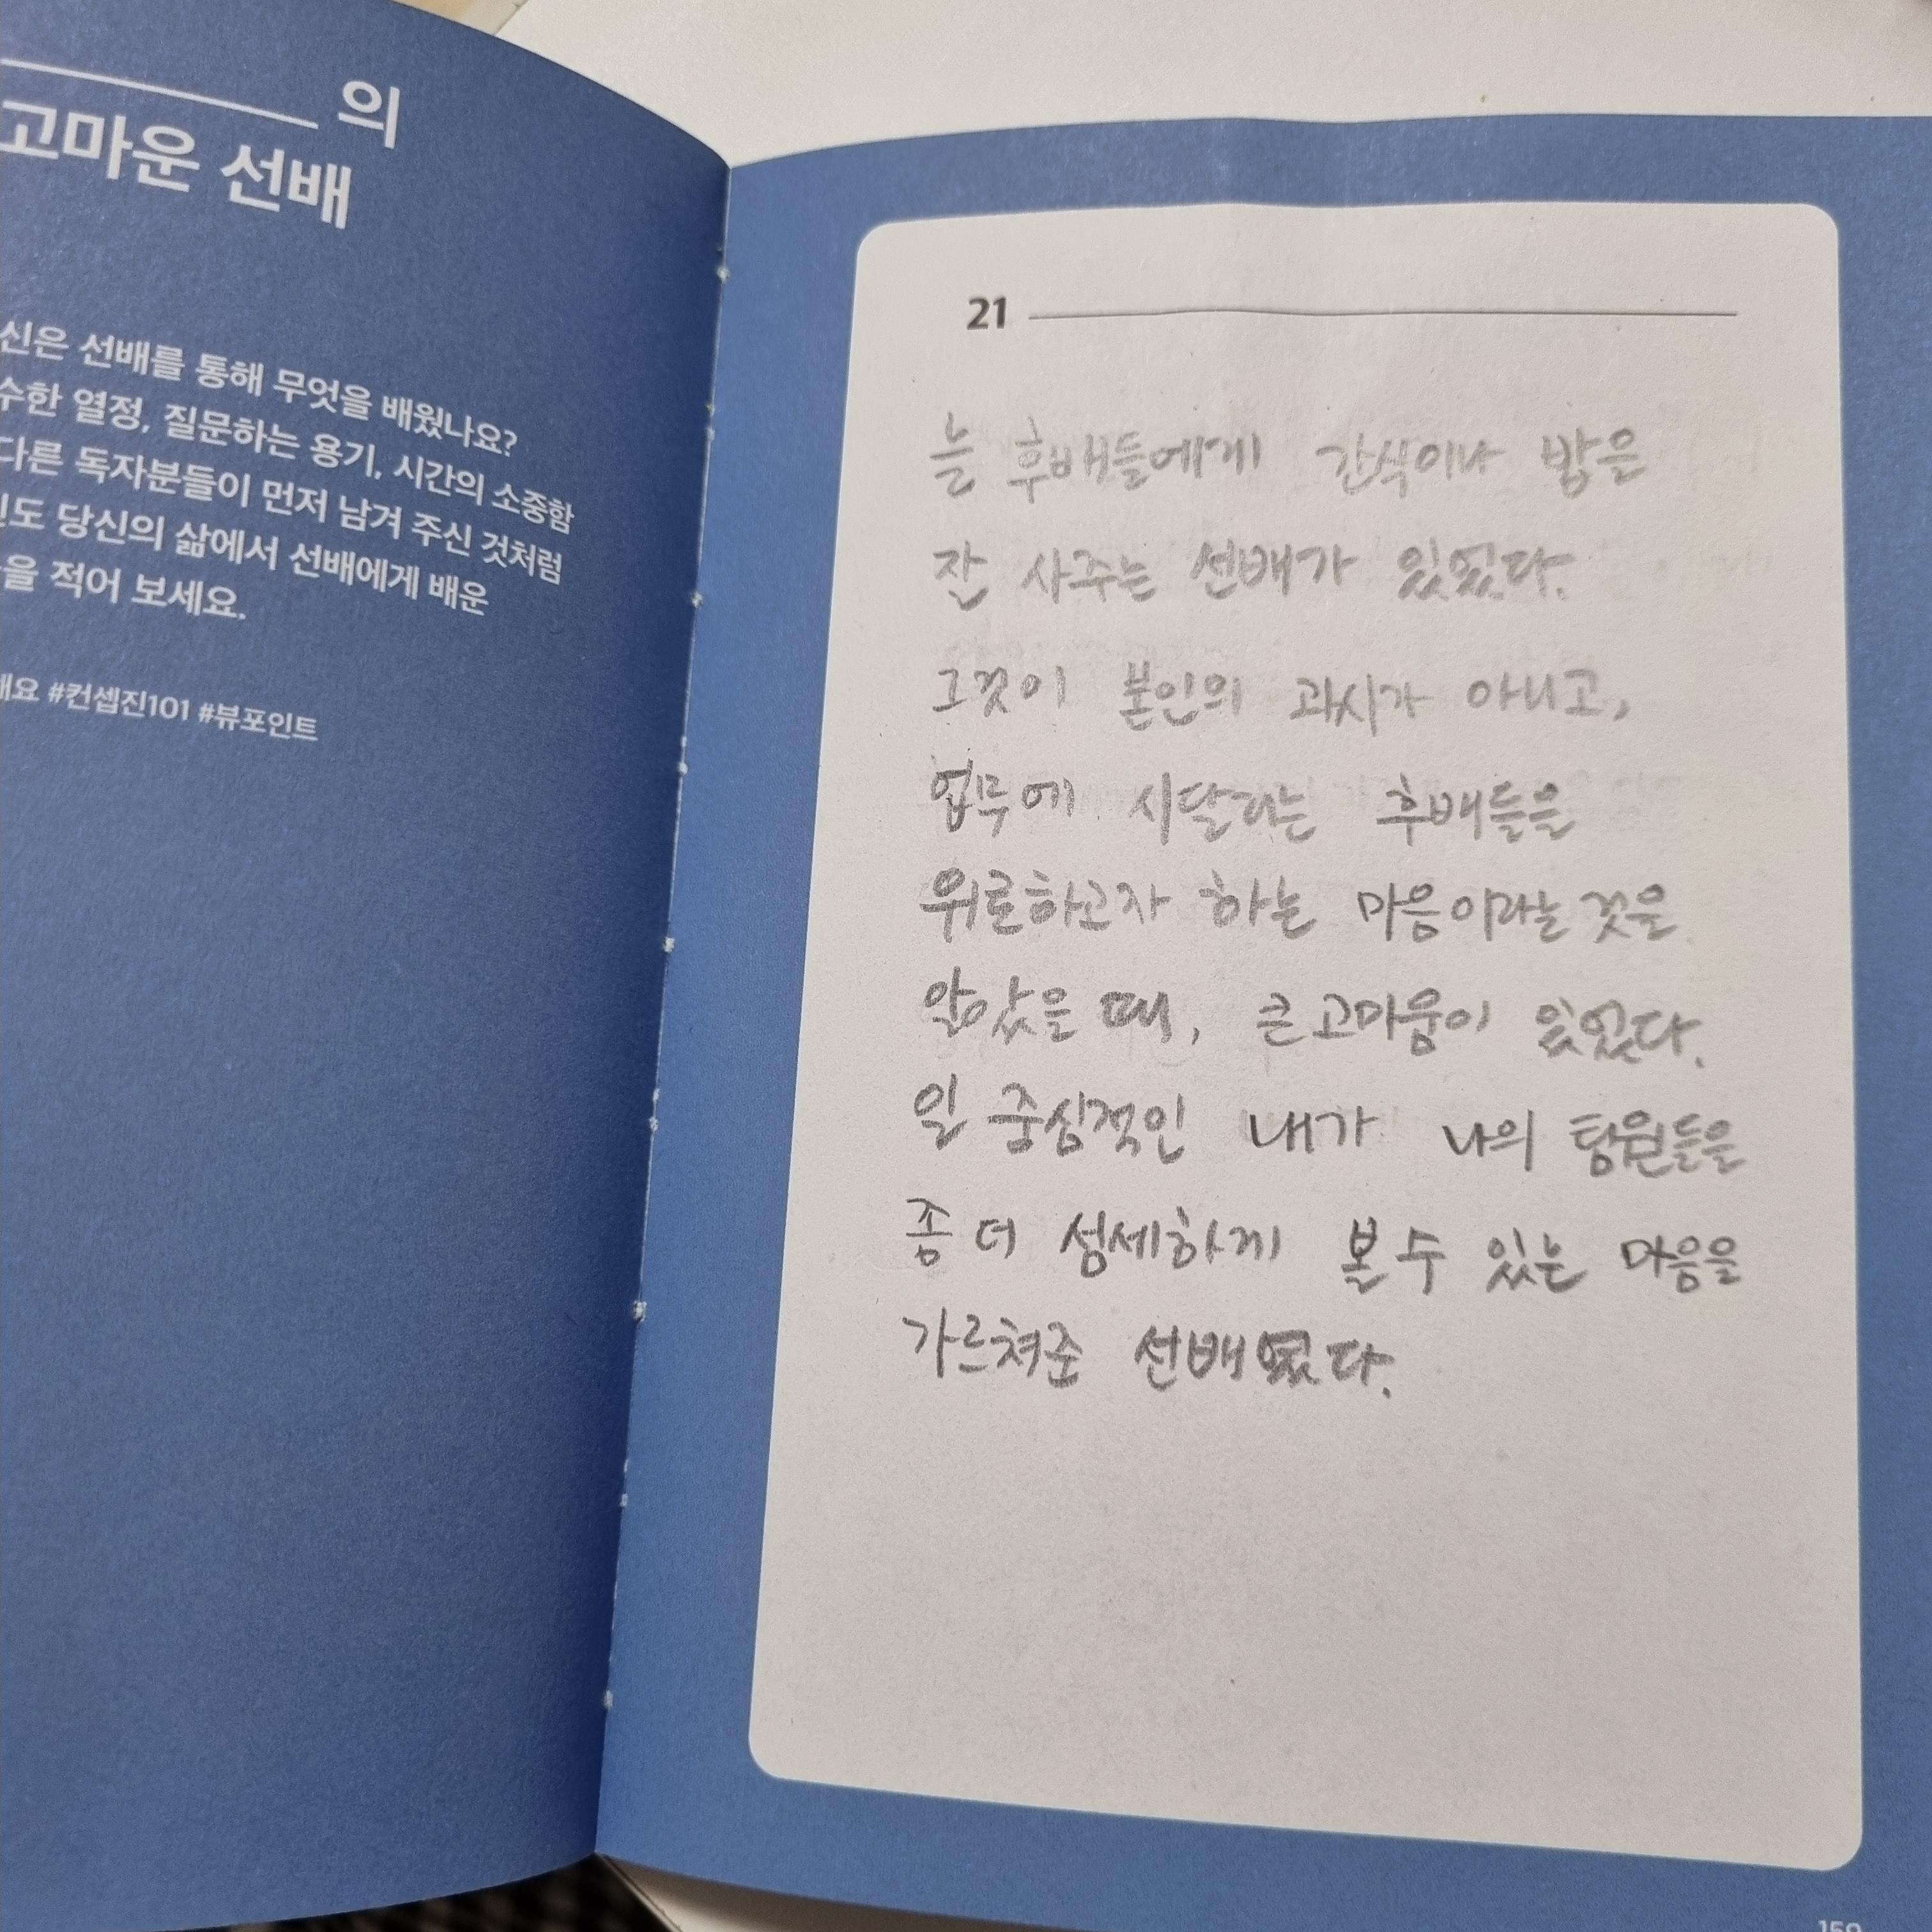 의
고마운 선배
신은 선배를 통해 무엇을 배웠나요?
수한 열정, 질문하는 용기, 시간의 소중함
다른 독자분들이 먼저 남겨 주신 것처럼
도 당신의 삶에서 선배에게 배운
을 적어 보세요.
해요 #컨셉진101 #뷰포인트
21
늘 후배들에게 간식이나 밥을
잘 사주는 선배가 있었다.
그것이 본인의 과시가 아니고,
업무에 시달리는 후배들을
위로하고자 하는 마음이라는 것을
알았을 때, 큰 고마움이 있었다.
일 중심적인 내가 나의 팀원들을
좀 더 섬세하게 볼 수 있는 마음을
가르쳐준 선배였다.
159